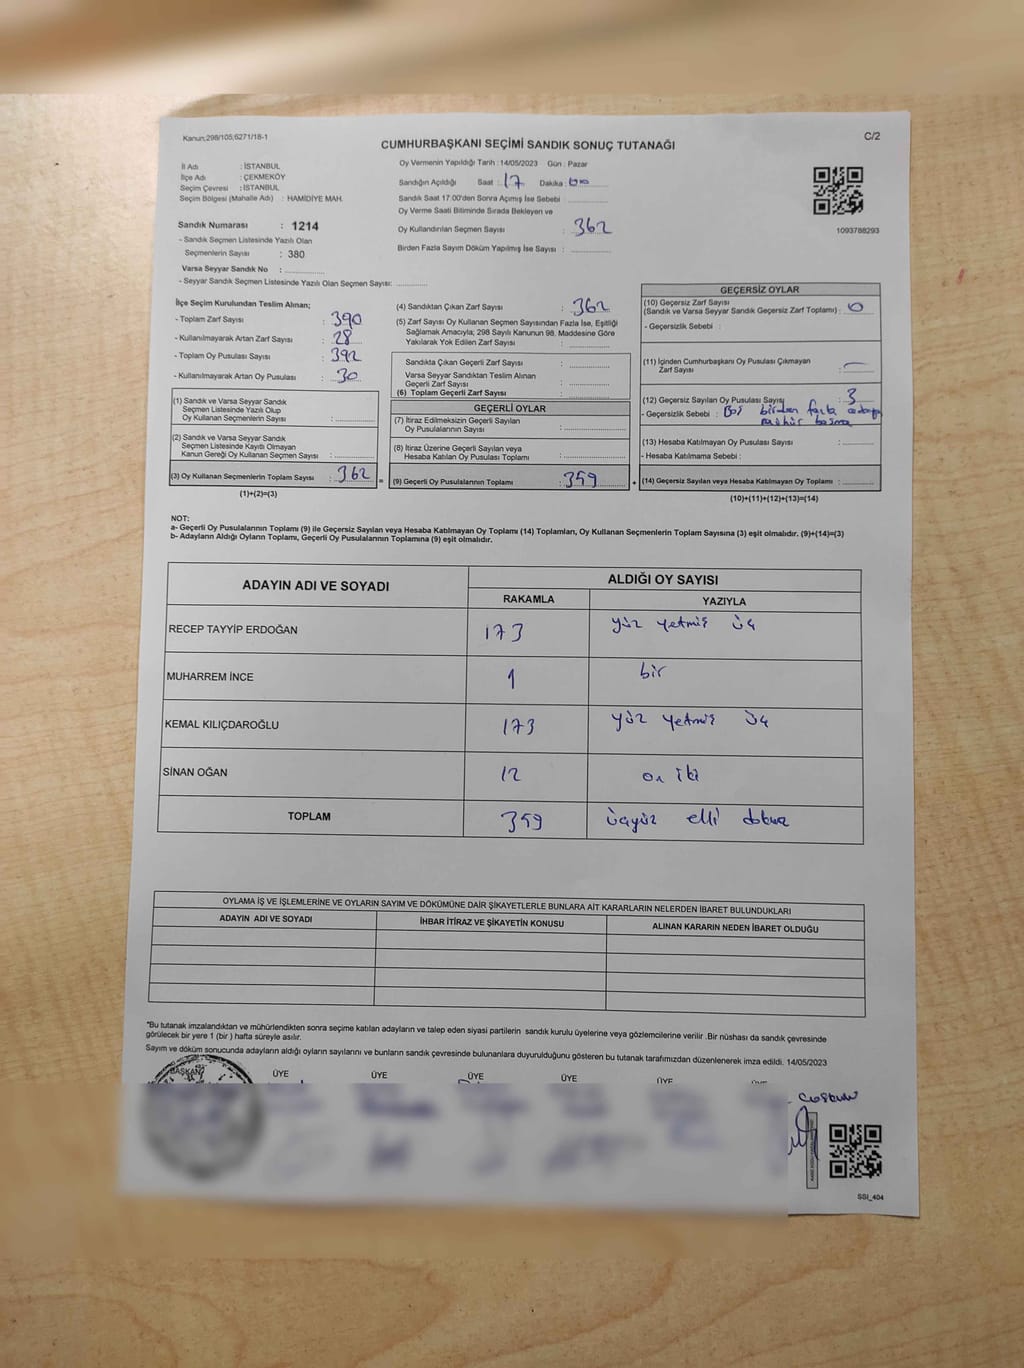 Kanun;298/105;6271/18-1
C/2
CUMHURBAŞKANI SEÇİMİ SANDIK SONUÇ TUTANAĞI
İl Adı : İSTANBUL
İlçe Adı : ÇEKMEKÖY
Seçim Çevresi : İSTANBUL
Seçim Bölgesi (Mahalle Adı) : HAMİDİYE MAH.
Sandık Numarası : 1214
- Sandık Seçmen Listesinde Yazılı Olan
Seçmenlerin Sayısı : 380
Varsa Seyyar Sandık No : ............
- Seyyar Sandık Seçmen Listesinde Yazılı Olan Seçmen Sayısı: ............
Oy Vermenin Yapıldığı Tarih : 14/05/2023 Gün : Pazar
Sandığın Açıldığı Saat : 17 Dakika :
Sandık Saat 17:00'den Sonra Açımış İse Sebebi : ............
Oy Verme Saati Bitiminde Sırada Bekleyen ve
Oy Kullandırılan Seçmen Sayısı : 362
Birden Fazla Sayım Döküm Yapılmış İse Sayısı : ............
1093788293
İlçe Seçim Kurulundan Teslim Alınan;
- Toplam Zarf Sayısı : 390
- Kullanılmayarak Artan Zarf Sayısı : 28
- Toplam Oy Pusulası Sayısı : 392
- Kullanılmayarak Artan Oy Pusulası : 30
(1) Sandık ve Varsa Seyyar Sandık
Seçmen Listesinde Yazılı Olup
Oy Kullanan Seçmenlerin Sayısı : ............
(2) Sandık ve Varsa Seyyar Sandık
Seçmen Listesinde Kayıtlı Olmayan
Kanun Gereği Oy Kullanan Seçmen Sayısı : ............
(3) Oy Kullanan Seçmenlerin Toplam Sayısı : 362 =
(1)+(2)=(3)
(4) Sandıktan Çıkan Zarf Sayısı : 362
(5) Zarf Sayısı Oy Kullanan Seçmen Sayısından Fazla İse, Eşitliği
Sağlamak Amacıyla; 298 Sayılı Kanunun 98. Maddesine Göre
Yakılarak Yok Edilen Zarf Sayısı : ............
Sandıkta Çıkan Geçerli Zarf Sayısı : ............
Varsa Seyyar Sandıktan Teslim Alınan
Geçerli Zarf Sayısı : ............
(6) Toplam Geçerli Zarf Sayısı : ............
GEÇERLİ OYLAR
(7) İtiraz Edilmeksizin Geçerli Sayılan
Oy Pusulalarının Sayısı : ............
(8) İtiraz Üzerine Geçerli Sayılan veya
Hesaba Katılan Oy Pusulası Toplamı : ............
(9) Geçerli Oy Pusulalarının Toplamı : 359 +
GEÇERSİZ OYLAR
(10) Geçersiz Zarf Sayısı
(Sandık ve Varsa Seyyar Sandık Geçersiz Zarf Toplamı) : 0
- Geçersizlik Sebebi :
(11) İçinden Cumhurbaşkanı Oy Pusulası Çıkmayan
Zarf Sayısı :
(12) Geçersiz Sayılan Oy Pusulası Sayısı : 3
- Geçersizlik Sebebi : birden fazla
mühür basma
(13) Hesaba Katılmayan Oy Pusulası Sayısı : ............
- Hesaba Katılmama Sebebi :
(14) Geçersiz Sayılan veya Hesaba Katılmayan Oy Toplamı : ............
(10)+(11)+(12)+(13)=(14)
NOT:
a- Geçerli Oy Pusulalarının Toplamı (9) ile Geçersiz Sayılan veya Hesaba Katılmayan Oy Toplamı (14) Toplamları, Oy Kullanan Seçmenlerin Toplam Sayısına (3) eşit olmalıdır. (9)+(14)=(3)
b- Adayların Aldığı Oyların Toplamı, Geçerli Oy Pusulalarının Toplamına (9) eşit olmalıdır.
ADAYIN ADI VE SOYADI
ALDIĞI OY SAYISI
RAKAMLA YAZIYLA
RECEP TAYYİP ERDOĞAN 173 yüz yetmiş üç
MUHARREM İNCE 1 bir
KEMAL KILIÇDAROĞLU 173 yüz yetmiş üç
SİNAN OĞAN 12 on iki
TOPLAM 359 üçyüz elli dokuz
OYLAMA İŞ VE İŞLEMLERİNE VE OYLARIN SAYIM VE DÖKÜMÜNE DAİR ŞİKAYETLERLE BUNLARA AİT KARARLARIN NELERDEN İBARET BULUNDUKLARI
ADAYIN ADI VE SOYADI İHBAR İTİRAZ VE ŞİKAYETİN KONUSU ALINAN KARARIN NEDEN İBARET OLDUĞU
*Bu tutanak imzalandıktan ve mühürlendikten sonra seçime katılan adayların ve talep eden siyasi partilerin sandık kurulu üyelerine veya gözlemcilerine verilir .Bir nüshası da sandık çevresinde
görülecek bir yere 1 (bir ) hafta süreyle asılır.
Sayım ve döküm sonucunda adayların aldığı oyların sayılarını ve bunların sandık çevresinde bulunanlara duyurulduğunu gösteren bu tutanak tarafımızdan düzenlenerek imza edildi. 14/05/2023
BAŞKAN ÜYE ÜYE ÜYE ÜYE ÜYE ÜYE
SSI_404